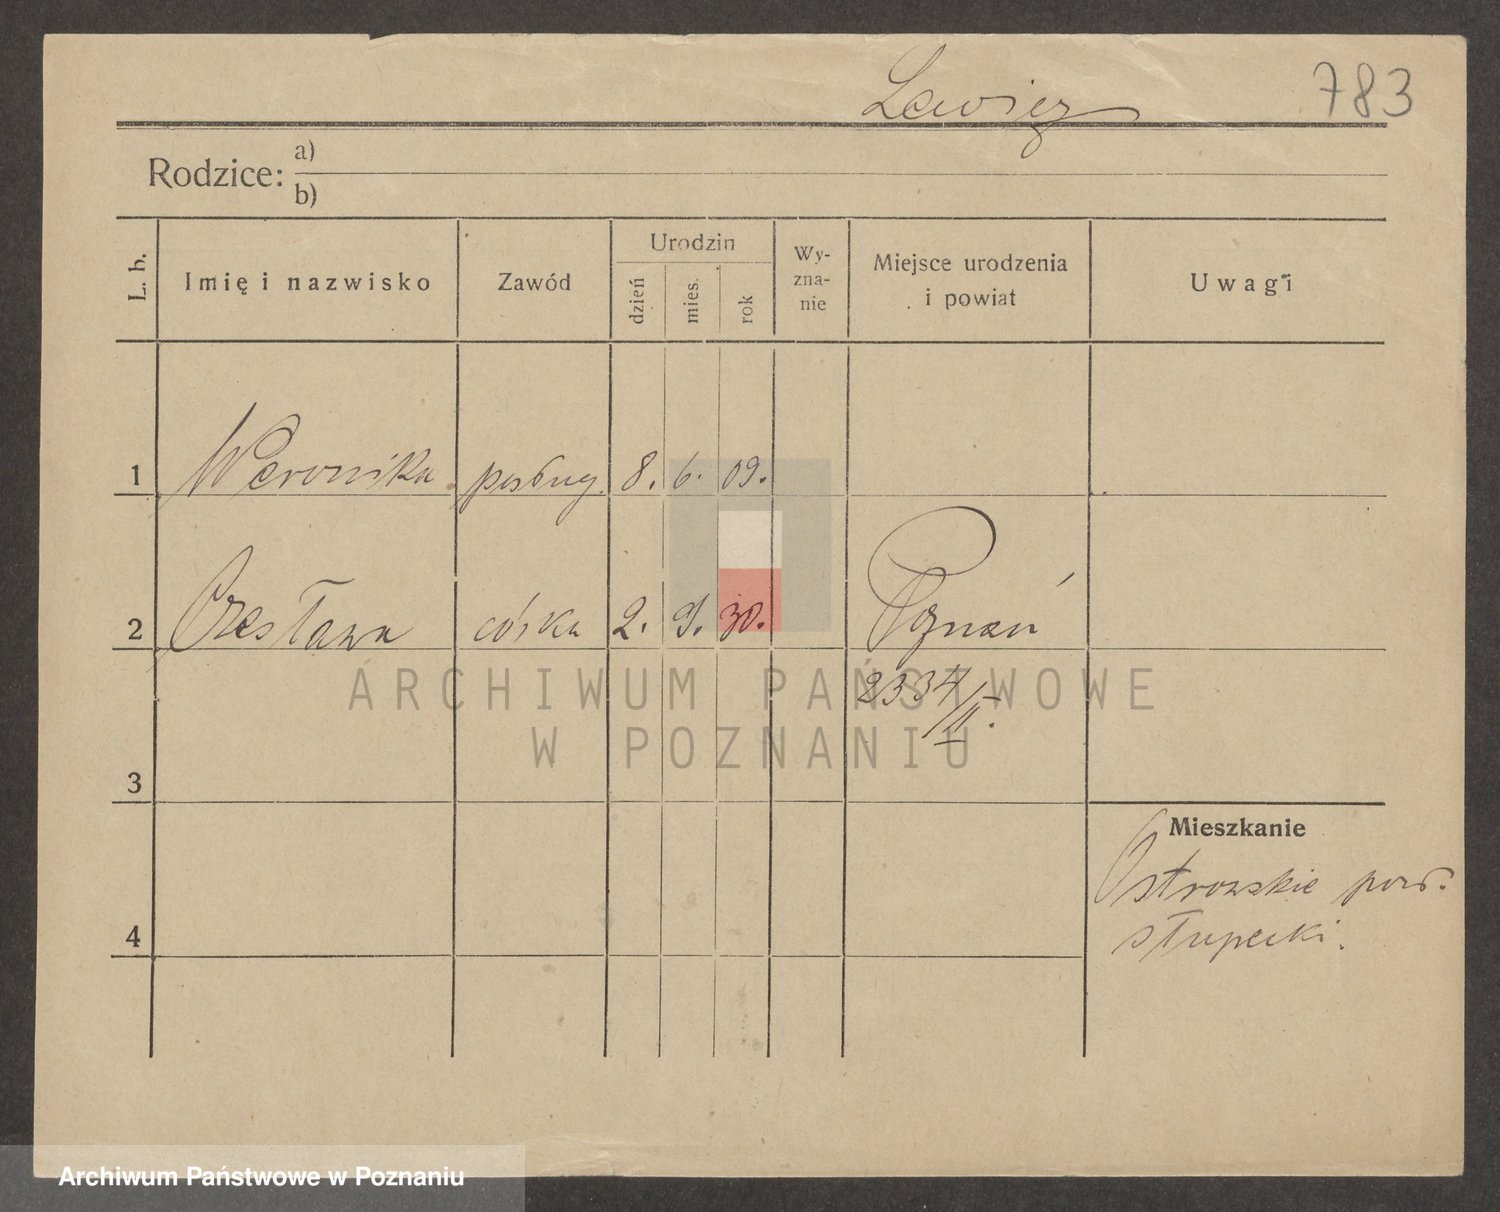 Lewicz
783
Rodzice: a)
b)
L. b. Imię i nazwisko Zawód Urodzin dzień mies. rok Wy-zna-nie Miejsce urodzenia i powiat Uwagi
1 Weronika posług. 8. 6. 09.
2 Czesława córka 2. 9. 30. Poznań
2334/II.
ARCHIWUM PAŃSTWOWE
W POZNANIU
3
Mieszkanie
Ostrowskie pow.
słupecki.
4
Archiwum Państwowe w Poznaniu